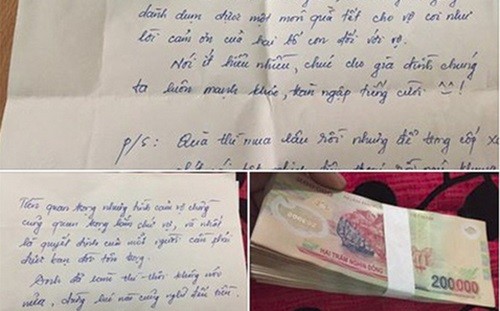 dành dụm được một món quà tết cho vợ coi như
lời cảm ơn của hai bố con đối với vợ.
Nói ít hiểu nhiều, chúc cho gia đình chúng
ta luôn mạnh khỏe, tràn ngập tiếng cười ^^!
p/s: Quà thì mua lâu rồi nhưng để trong cốp
Tiền quan trọng nhưng tình cảm vợ chồng
cũng quan trọng lắm chứ vợ, và nhất
là quyết định của mỗi người cần phải
được bạn đời tôn trọng.
nữa, đừng lúc nào cũng nghĩ đến tiền.
HAI TRĂM NGHÌN ĐỒNG
200.000